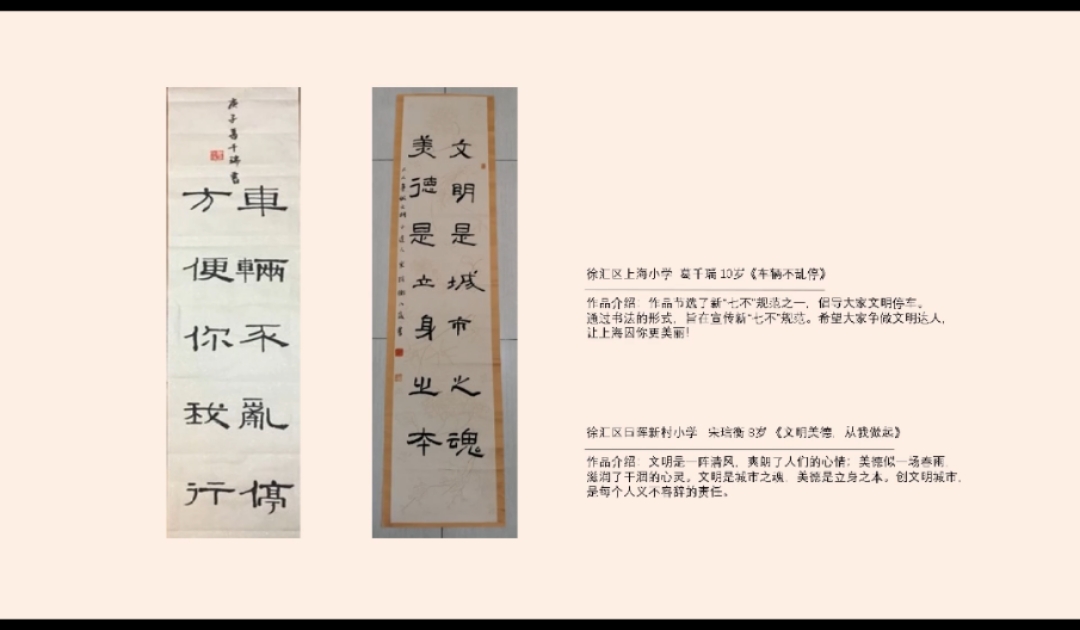 車輛不亂停
方便你我行
庚子葛千瑞書
文明是城市之魂
美德是立身之本
徐汇区上海小学 葛千瑞 10岁《车辆不乱停》
作品介绍：作品节选了新“七不”规范之一，倡导大家文明停车。
通过书法的形式，旨在宣传新“七不”规范。希望大家争做文明达人，
让上海因你更美丽！
徐汇区日晖新村小学 朱瑄衡 8岁 《文明美德，从我做起》
作品介绍：文明是一阵清风，爽朗了人们的心情；美德似一场春雨，
滋润了干涸的心灵。文明是城市之魂，美德是立身之本。创文明城市，
是每个人义不容辞的责任。